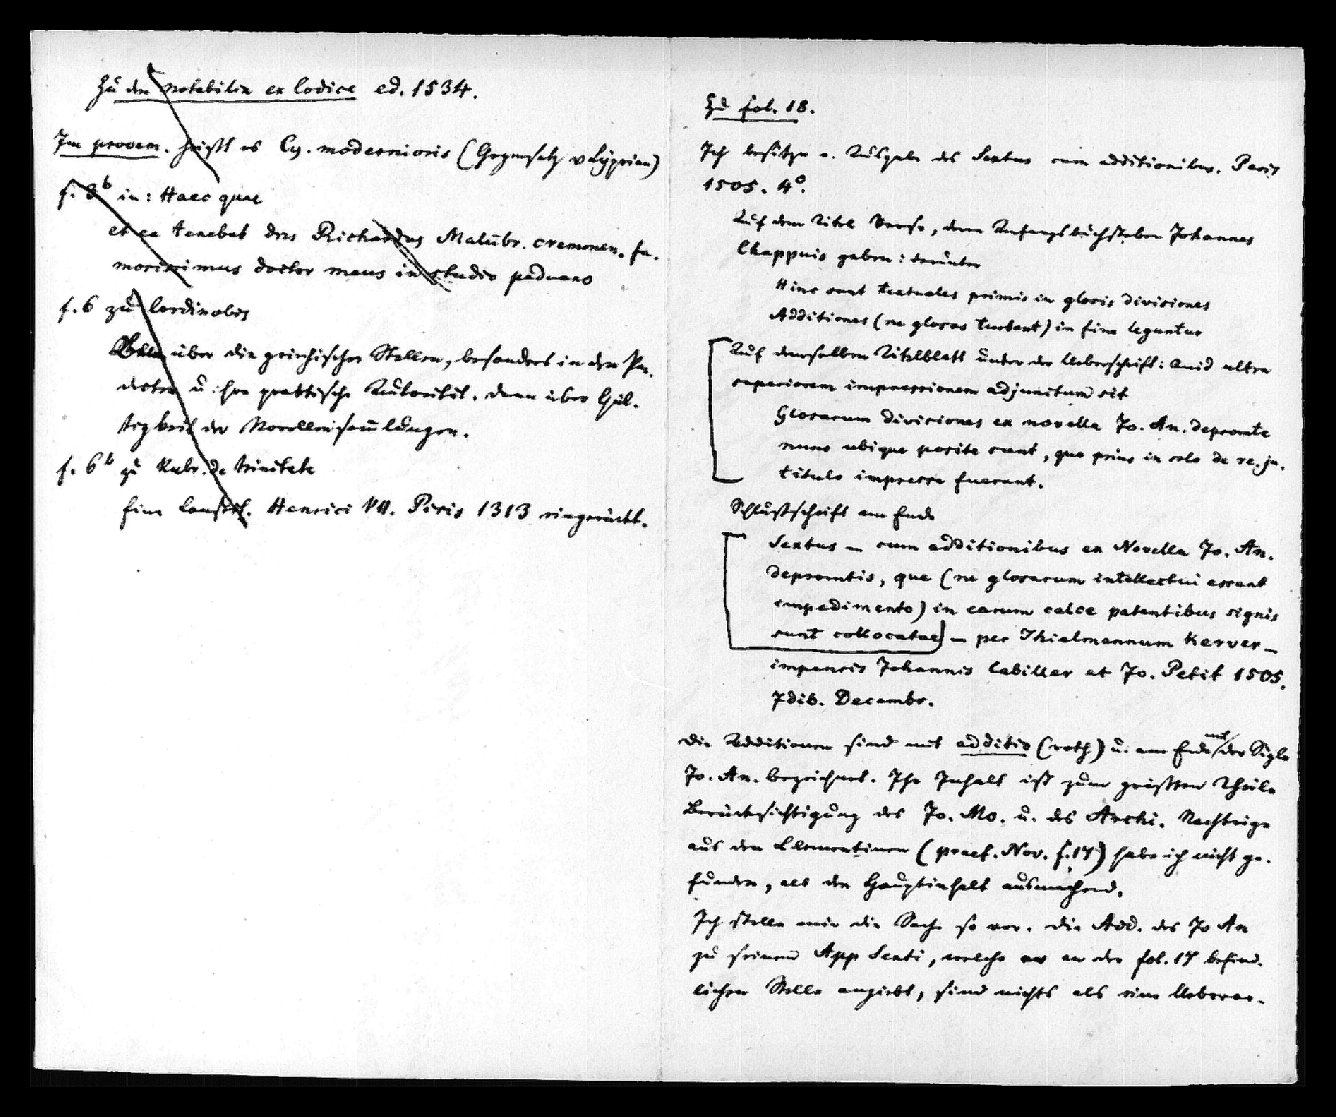 Zu den Notabilia ex Codice ed. 1534.
Im prooem. heißt es Cy. modernioris (Gegensatz v Cyprian)
f. 3b in: Haec quae
et ea tenebat dns Richardus Malubr. cremonen. fa-
mosissimus doctor meus in studio paduano
f. 6 zu
über die griechischen Stellen, besonders in den Pan-
decten u. ihre praktische Autorität. dann über Gül-
tigkeit der Novellensammlungen.
f. 6b zu Rubr. de trinitate
Eine Constit. Henrici VII. Pisis 1313 eingerückt.
Zu fol. 18.
Ich besitze e. Ausgabe des Sextus cum additionibus. Paris
1505. 4°.
Auf dem Titel Verse, deren Anfangsbuchstaben Johannes
Chappuis geben: darunter
Hinc sunt textuales primis in glosis divisiones
Additiones (ne glosas turbent) in fine leguntur
Auf demselben Titelblatt unter der Ueberschrift: Quid ultra
superiorem impressionem adjunctum sit
Glosarum divisiones ex novella Jo. An. deprompte
nunc ubique posite sunt, que prius in solo de re. ju.
titulo impresse fuerant.
Schlußschrift am Ende
Sextus — cum additionibus ex Novella Jo. An.
depromtis, que (ne glosarum intellectui essent
impedimento) in earum calce patentibus signis
sunt collocatae) — per Thielmannum Kerver —
impensis Johannis Cabiller et Jo. Petit 1505.
7dib. Decembr.
Die Additionen sind mit additio (roth) u. am Ende mit der Sigle
Jo. An. bezeichnet. Ihr Inhalt ist zum größten Theile
Berücksichtigung des Jo. Mo. u. des Archi. Nachträge
aus den Clementinen (praef. Nov. f. 17) habe ich nicht ge-
funden, als den Hauptinhalt ausmachend.
Ich stelle mir die Sache so vor. Die Add. des Jo An
zu seinem App Sexti, welche er an der fol. 17 befind-
lichen Stelle angiebt, sind nichts als eine